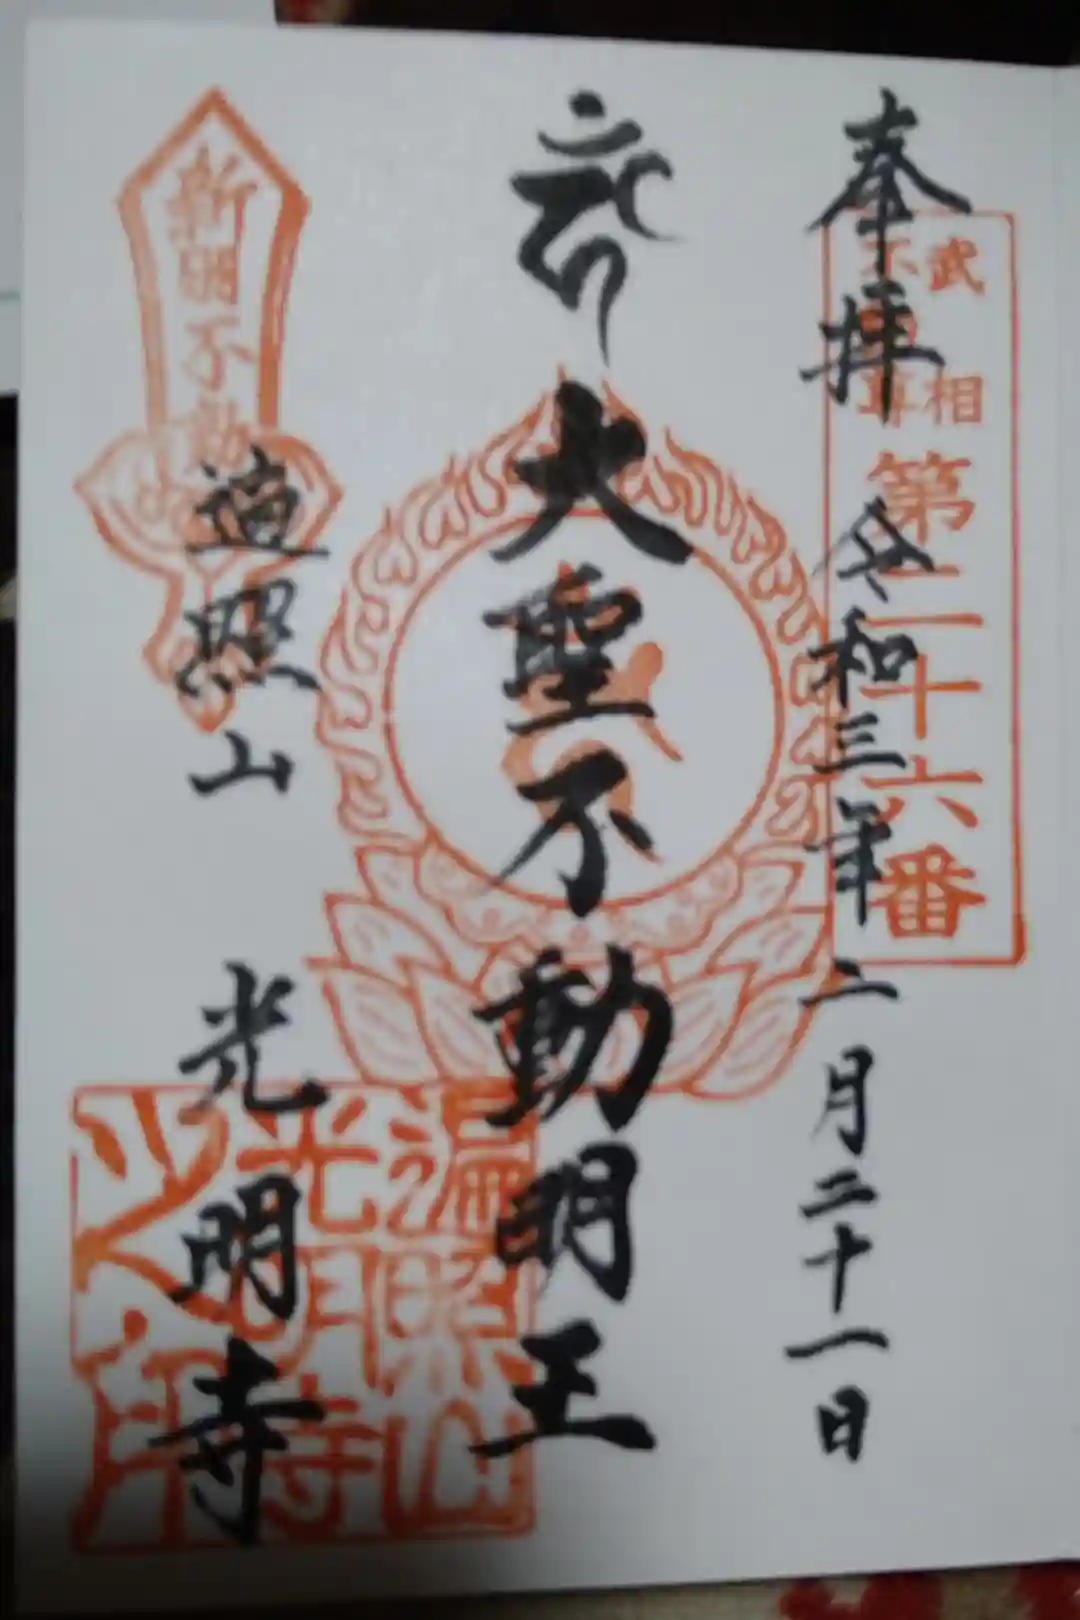 奉拝
令和三年二月二十一日
武相
不動尊
第二十六番
大聖不動明王
遍照山
光明寺
新明不動
遍照山
光明寺
之印